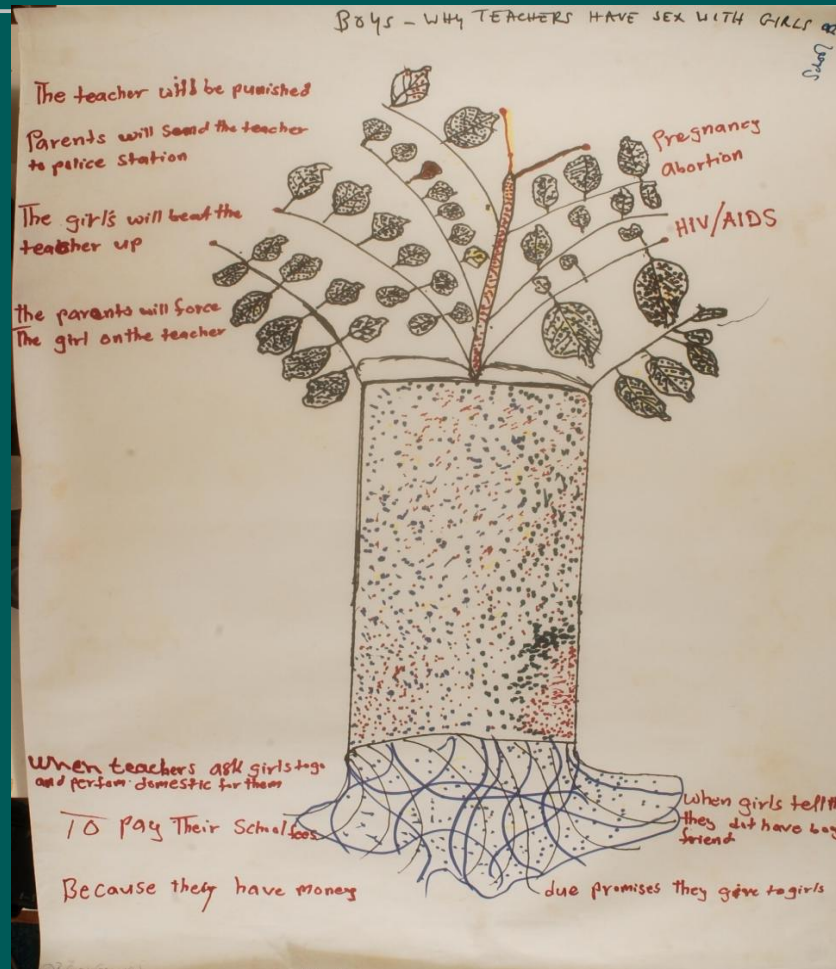 BOYS – WHY TEACHERS HAVE SEX WITH GIRLS
School
The teacher will be punished
Parents will send the teacher
to police station
The girls will beat the
teacher up
the parents will force
The girl on the teacher
Pregnancy
abortion
HIV/AIDS
When teachers ask girls to go
and perform domestic for them
TO pay Their School fees
Because they have money
When girls tell
they dot have
friend
due promises they give to girls